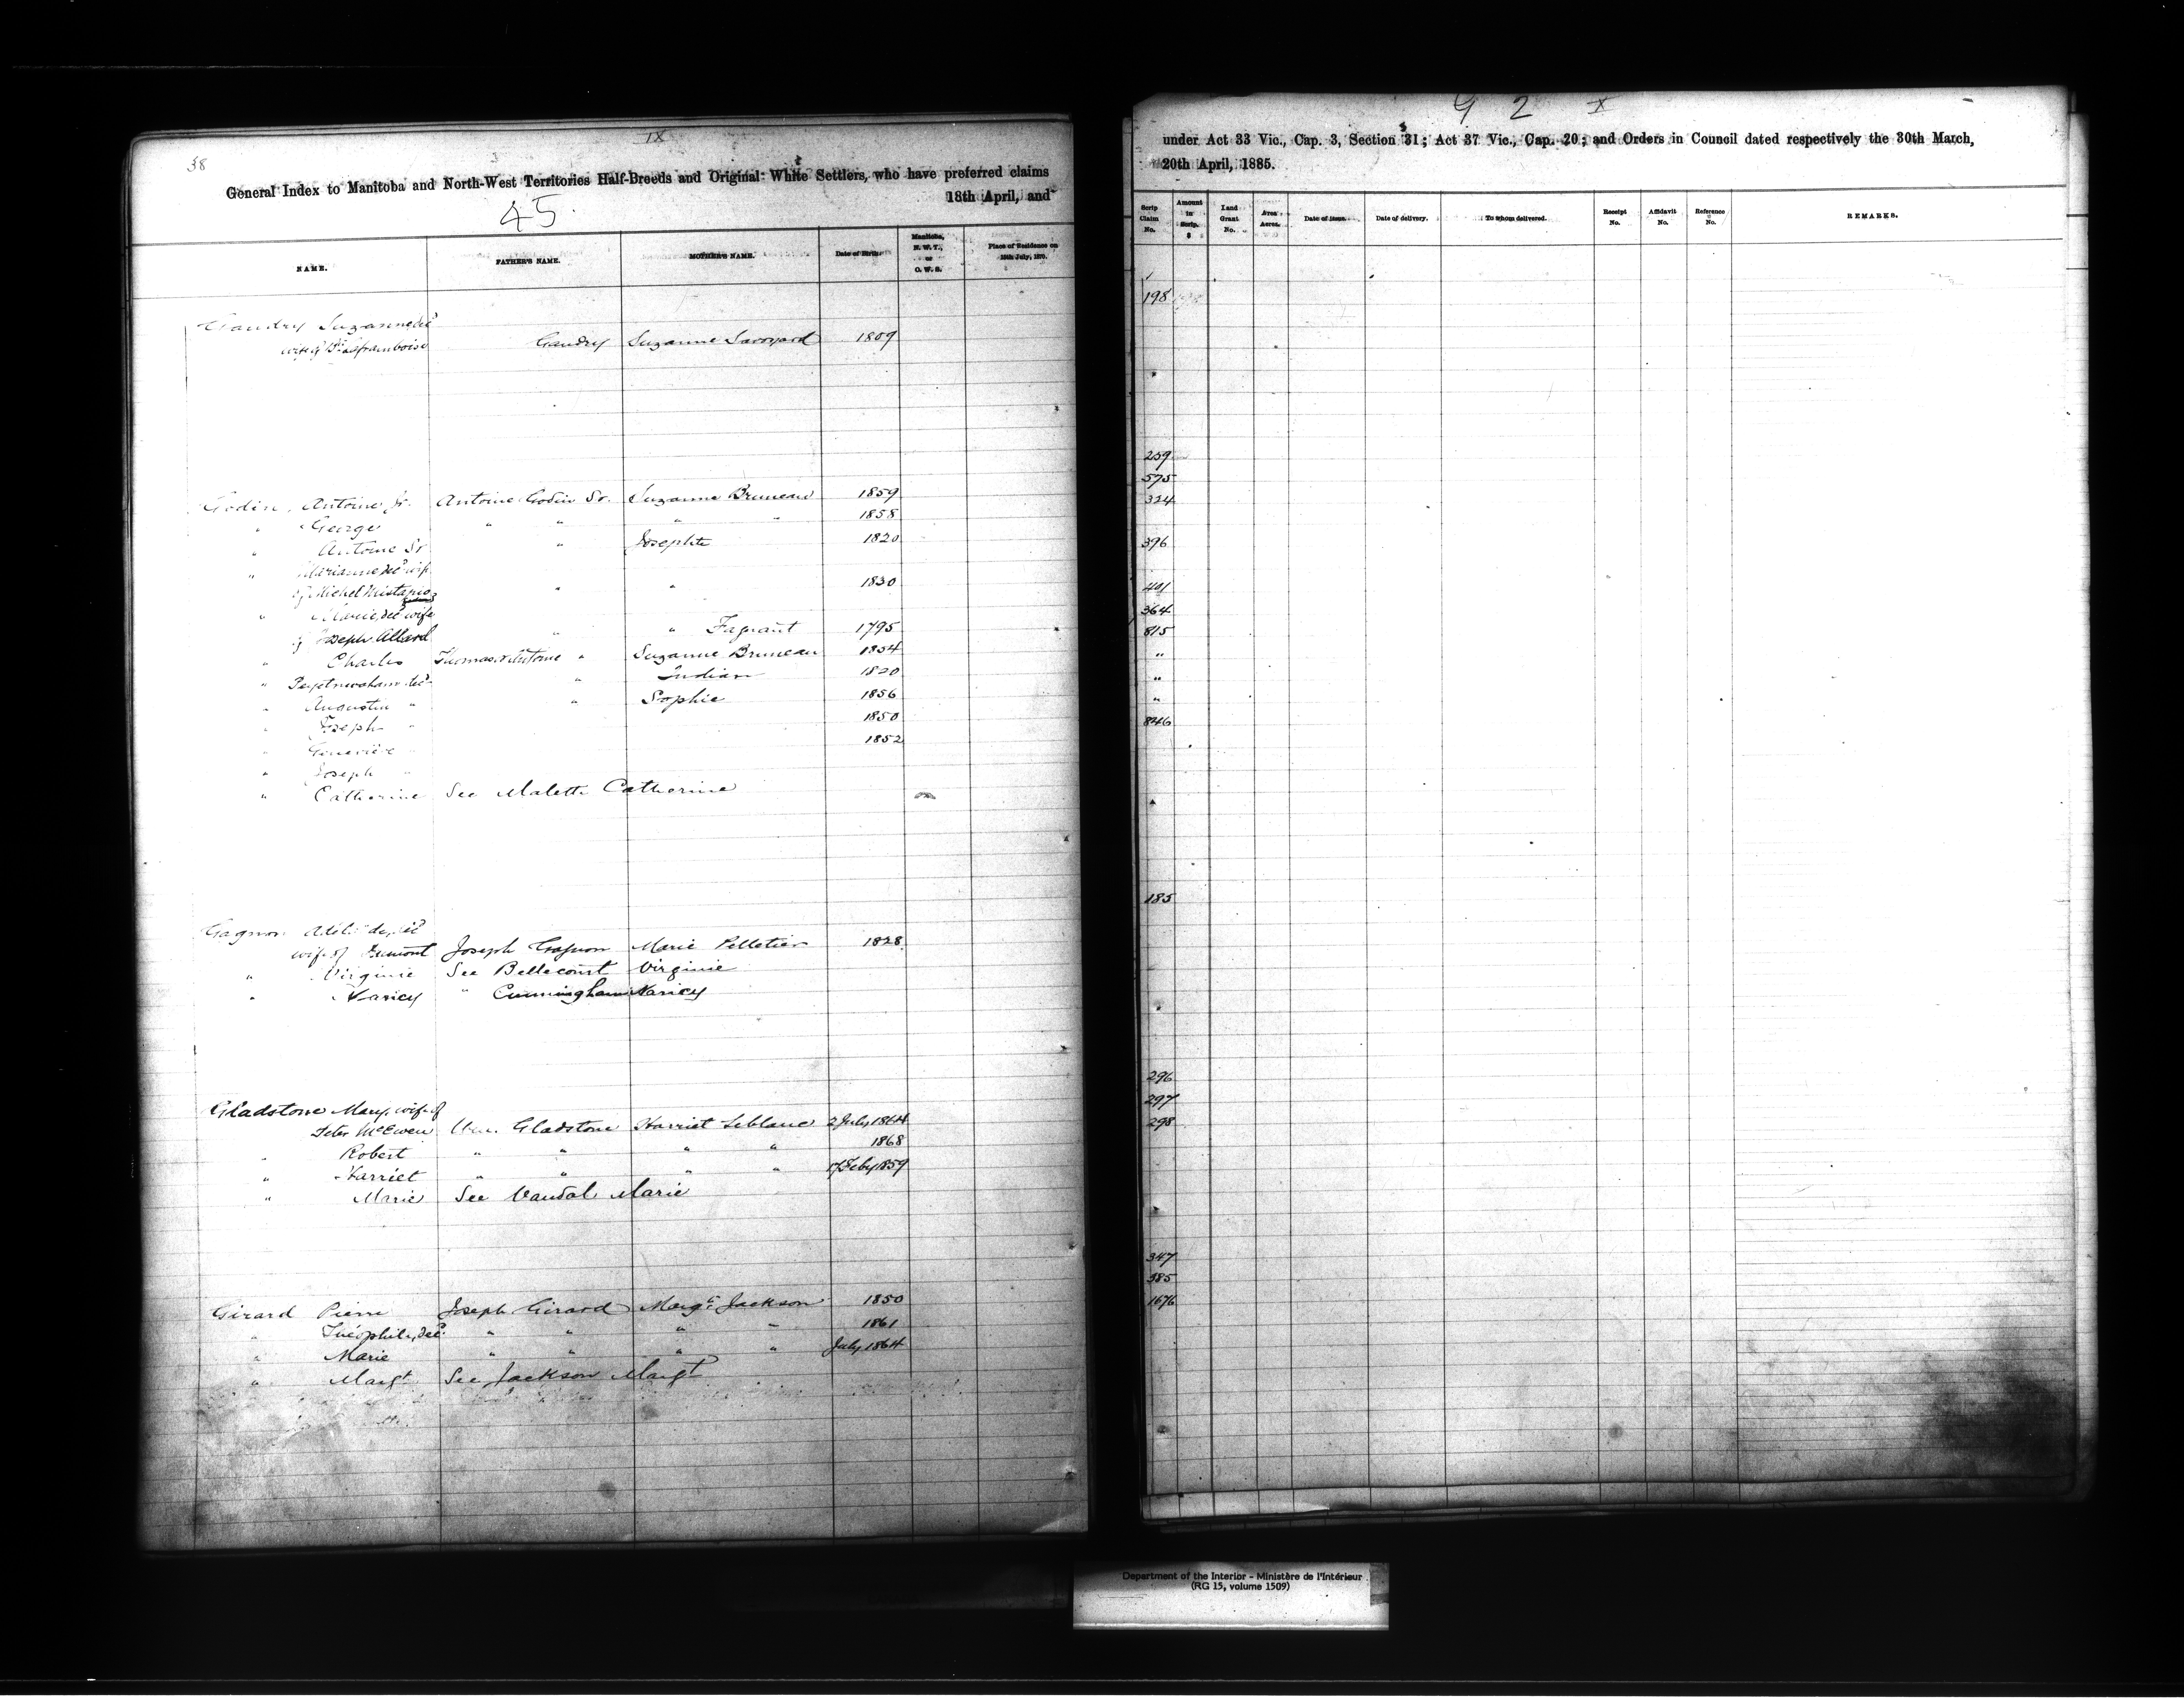 38
IX
General Index to Manitoba and North-West Territories Half-Breeds and Original White Settlers, who have preferred claims
18th April, and
45.
NAME. FATHER'S NAME. MOTHER'S NAME. Date of Birth. Manitoba, N. W. T., or O. W. S. Place of Residence on 15th July, 1870.
Gaudry Suzanne, dec'd
wife of Laframboise Gaudry Suzanne Savoyard 1809
Godin, Antoine Jr. Antoine Godin Sr. Suzanne Bruneau 1859
" George " " " " 1858
" Antoine Sr " Josephte 1820
" Marianne, dec'd wife
of Michel " " 1830
" Marie, dec'd wife
of Joseph Allard " " Fagnant 1795
" Charles Thomas Antoine " Suzanne Bruneau 1854
" dec'd " Indian 1820
" Augustin " " Sophie 1856
" Joseph " 1850
" Genevieve " 1852
" Joseph "
" Catherine See Malette Catherine
Gagnon Adelaide, dec'd
wife of Dumont Joseph Gagnon Marie Pelletier 1828
" Virginie See Bellecourt Virginie
" Nancy " Cunningham Nancy
Gladstone Mary, wife of
Peter McEwen Wm. Gladstone Harriet Leblanc 2 July, 1864
" Robert " " " " 1868
" Harriet " " " " 17 Feby 1859
" Marie See Vandal Marie
Girard Pierre Joseph Girard Margt. Jackson 1850
" Theophile, dec'd " " " " 1861
" Marie " " " " July, 1864
" Margt See Jackson Margt
9 2 X
under Act 33 Vic., Cap. 3, Section 31; Act 37 Vic., Cap. 20; and Orders in Council dated respectively the 30th March,
20th April, 1885.
Scrip Claim No. Amount in Scrip. $ Land Grant No. Area Acres. Date of issue. Date of delivery. To whom delivered. Receipt No. Affidavit No. Reference No. REMARKS.
198
259
575
324
396
401
364
815
"
"
"
846
185
296
297
298
347
385
1676
Department of the Interior - Ministère de l'Intérieur
(RG 15, volume 1509)